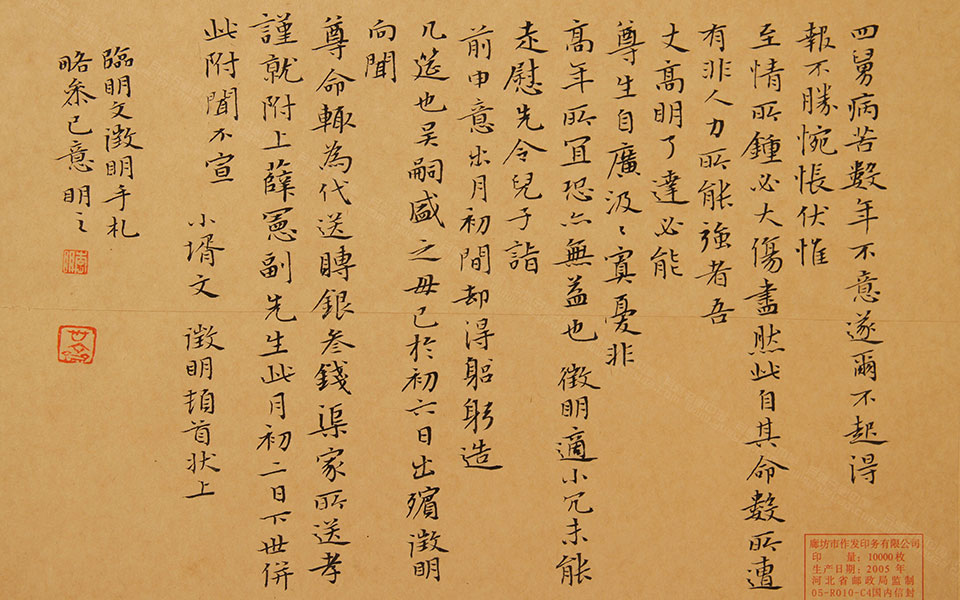 四舅病苦數年不意遂爾不起得
報不勝惋悵伏惟
至情所鍾必大傷盡然此自其命數所遭
有非人力所能強者吾
丈高明了達必能
尊生自廣汲〻寞憂非
高年所宜恐亦無益也 徵明適小冗未能
走慰先令兒子詣
前申意出月初間却得躬躬造
几筵也吴嗣盛之毋已於初六日出殯徵明
向聞
尊命輙為代送賻銀叁錢渠家所送孝
謹就附上薛憲副先生此月初二日下世併
此附聞不宣
小壻文 徵明頓首狀上
臨明文徵明手札
略叅已意明之
廊坊市作发印务有限公司
印 量：10000枚
生产日期：2005 年
河北省邮政局监制
05-R010-C4国内信封